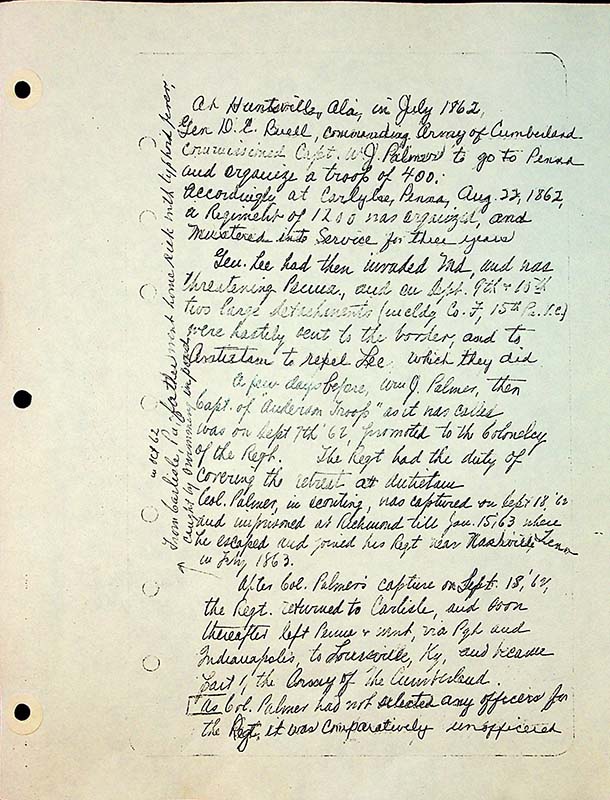 At Huntsville, Ala, in July 1862,
Gen D. C. Buell, commanding Army of Cumberland
commissioned Capt. W J. Palmer to go to Penna
and organize a troop of 400.
Accordingly, at Carlylse, Penna, Aug. 22, 1862,
a Regiment of 1200 was organized, and
Mustered into Service for three years
Gen. Lee had then invaded Md, and was
threatening Penna., and on Sept. 9th & 15th
two large detachments (includg Co. F, 15th Pa. V.C)
were hastily sent to the border, and to
Antietam to repel Lee. which they did
A few days before, Wm J. Palmer, then
Capt. of "Anderson Troop" as it was called
was on Sept 7th '62, promoted to the Coloneley
of the Regt. The Regt had the duty of
covering the retreat at Antietam
Col. Palmer, in scouting, was captured on Sept 18, '62
and imprisoned at Richmond till Jan. 15, '63 where
he escaped and joined his Regt near Nashville Tenn
in Feby 1863.
After Col. Palmer's capture on Sept. 18, '62,
the Regt. returned to Carlisle, and soon
thereafter left Penna & went, via Pgh and
Indianapolis, to Louisville, Ky, and became
Part of the Army of the Cumberland.
As Col. Palmer had not selected any officers for
the Regt, it was comparatively unofficered
in Oct 62
From Carlisle, Pa, father went home sick with typhoid fever,
caught by swimming in pond